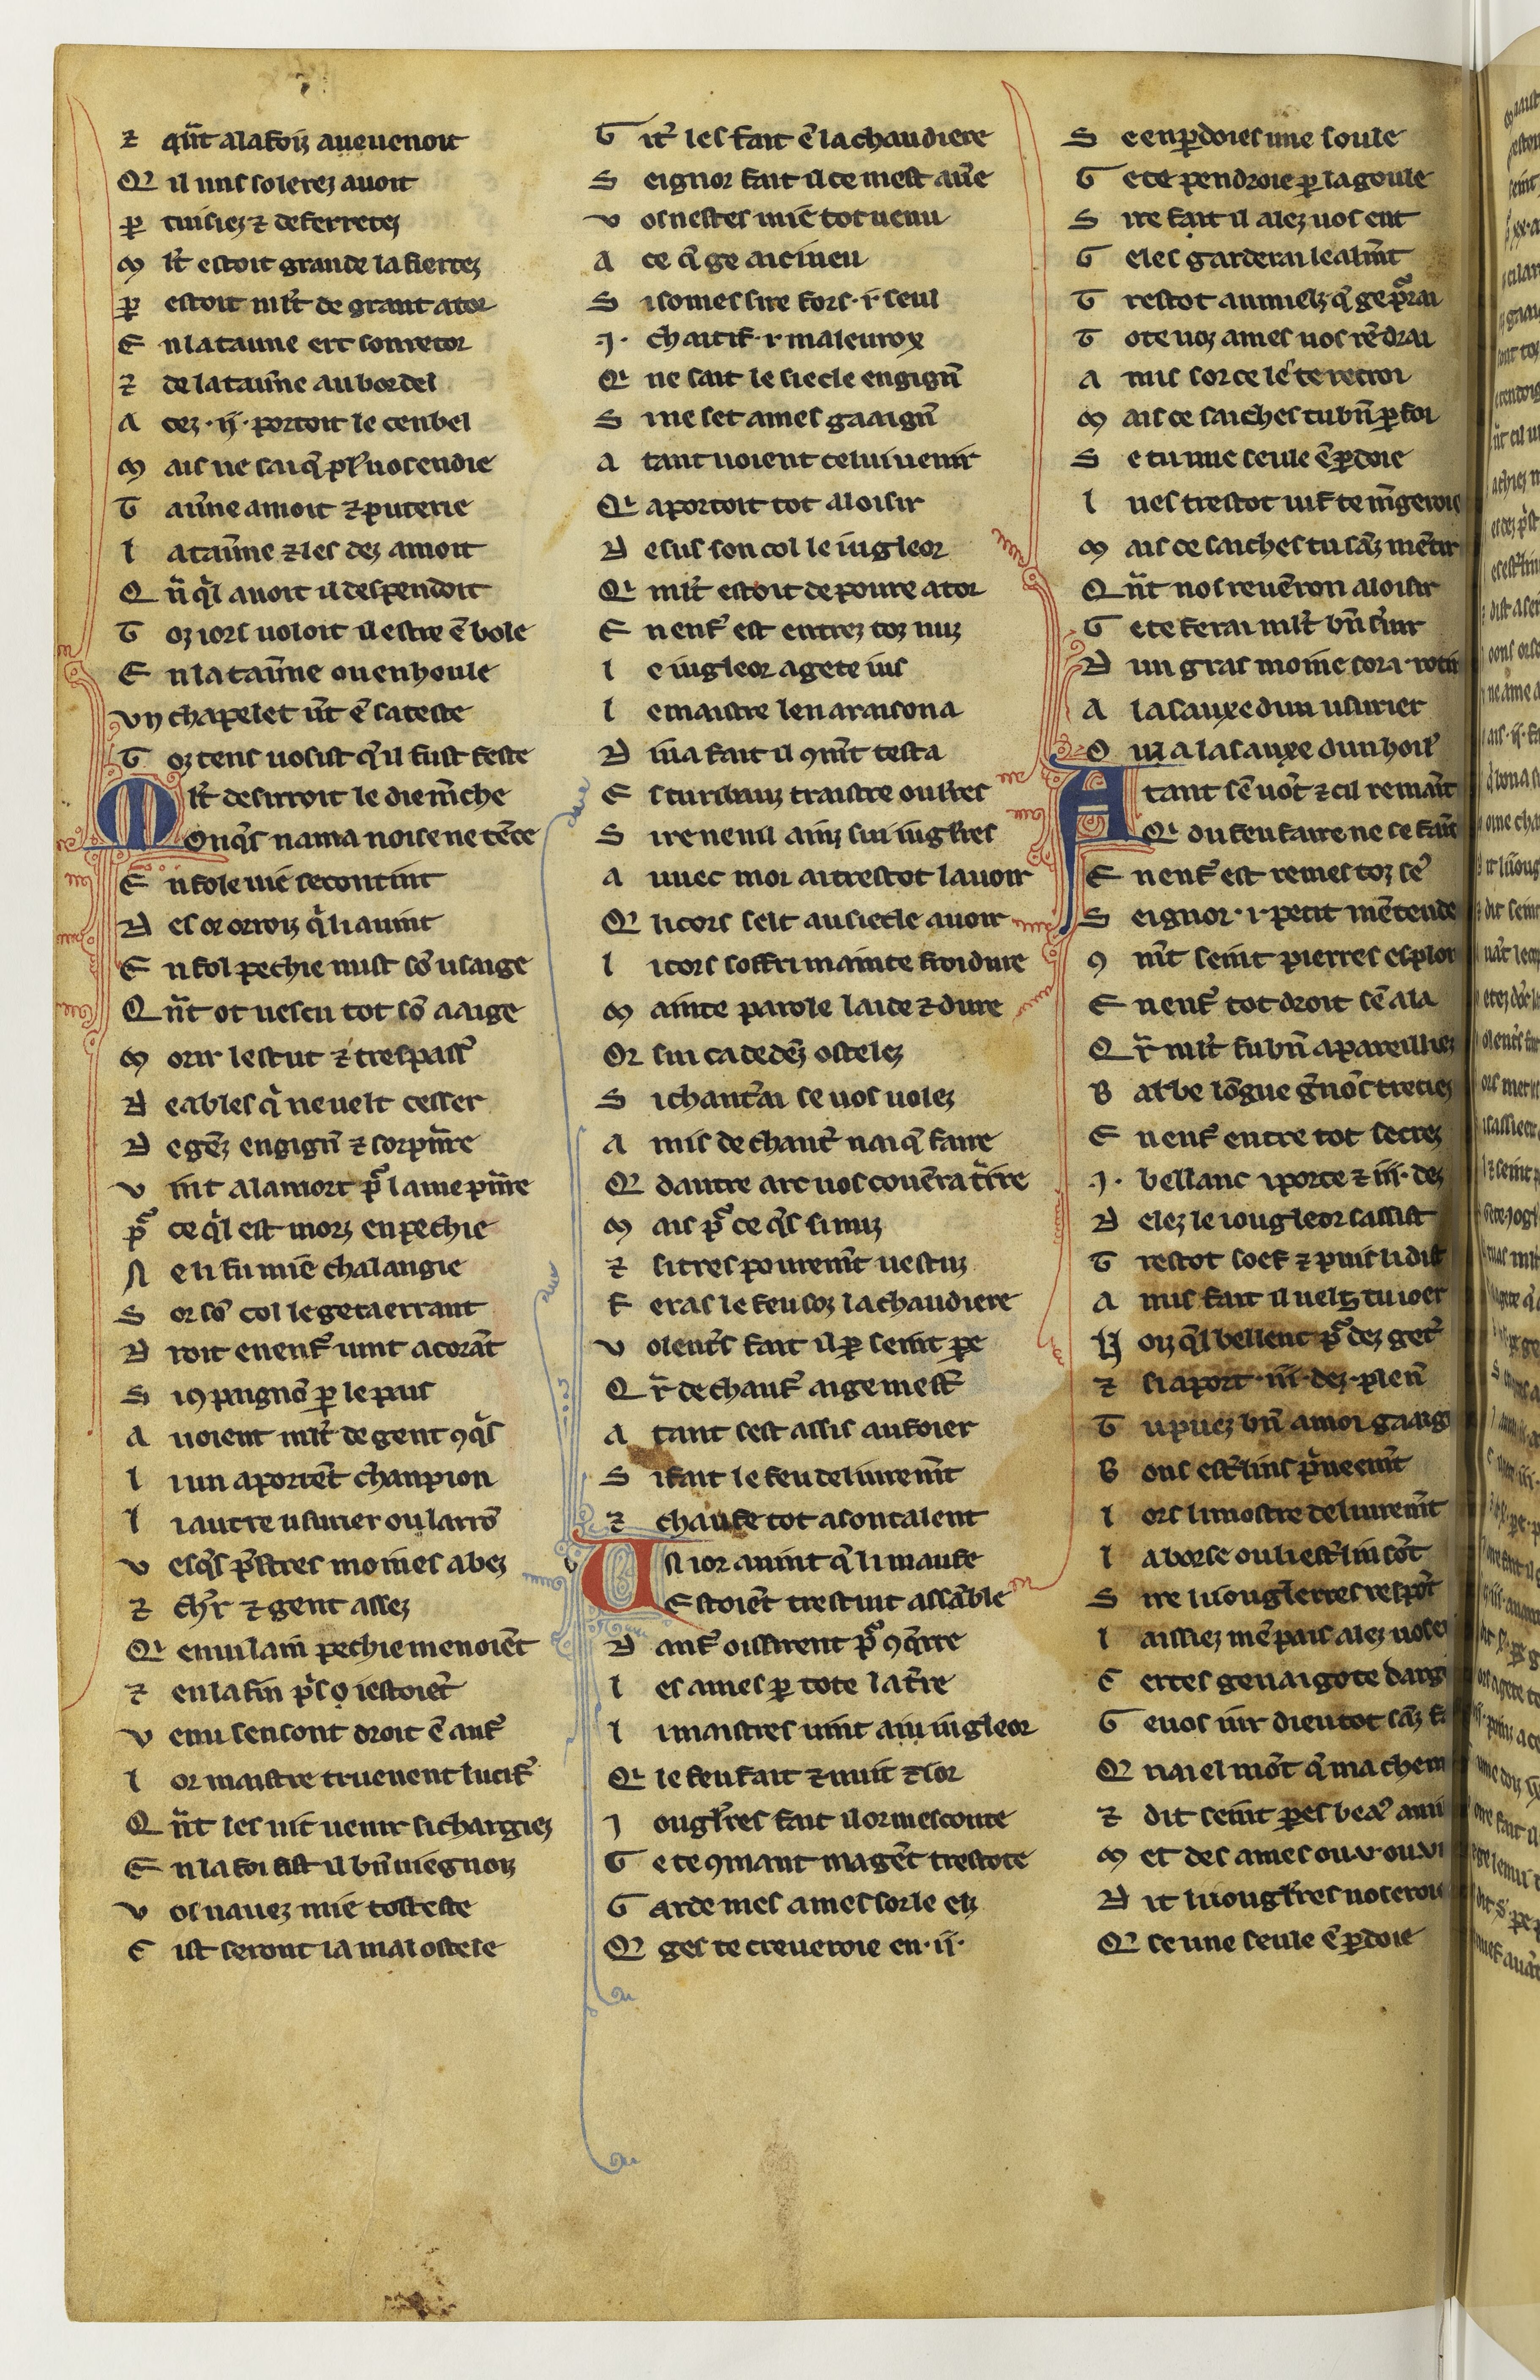 ⁊ qñt alafoiz aueuenoit
Q il uns solerez auoit
ꝑ tuisiez ⁊ deferretez
M lt̃ estoit grande la fiertez
ꝑ estoit mlt̃ de grant ator
E n la tauñe ert son retor
⁊ de la tauñe au bordel
A cez .ij. portoit le cenbel
M ais ne sai q̃ pl᷑ uos en die
T auñe amoit ⁊ puterie
L a tauñe ⁊ les dez amoit
Q ñ q̃l auoit il despendoit
T oz iors uoloit il estre ẽ bole
E n la tauñe ou en houle
Vn chapelet u᷑t ẽ sa teste
T oz tens uosist q̃l fust feste
M lt̃ desirroit le diem̃che
Onq̃s nama noise ne tẽce
E n fole uie se contint
D es or orroiz q̃ li auint
E n fol pechie mist sõ usaige
Q ñt ot uescu tot sõ aaige
M orir lestut ⁊ trespass᷑
D eables q̃ ne uelt cesser
D e gẽz engign᷑ ⁊ sorpñre
V int a la mort pr̃ lame pñre
pr̃ ce q̃l est morz en pechie
N e li fu mie chalangie
S or sõ col le geta errant
D roit en enf᷑ uint acorãt
S i ꝯpaignõ ꝑ le pais
A uoient mlt̃ de gent ꝯq̃s
L i un aportẽt chanpion
L i autre usurier ou larrõ
V esq̃s p̃stres moines abez
⁊ chr̃ ⁊ gent assez
Qi en uilain pechie menoiẽt
⁊ en la fin p̃s q̃ i estoiẽt
V enu sen sont droit ẽ anf᷑
L or maistre truevent lucif᷑
Q ñt les uit uenir si chargiez
E n la foi fist il bñ uiegnoiz
V os nauez mie tost este
C ist seront ia mal ostele
G it᷑ les fait ẽ la chaudiere
S eignor fait il ce mest auĩe
V os nestes mie tot uenu
A ce q̃ ge ai ci ueu
S i somes sire fors .i. seul
.I. chaitif .i. maleurox
Qi ne sait le siecle engign᷑
S i ne set ames gaaign᷑
A tant uoient celui uenir
Qi aportoit tot a loisir
D esus son col le iugleor
Qi mlt̃ estoit de poure ator
E n enf᷑ est entrez toz nuz
L e iugleor a gete ius
L e maistre len araisona
D iua fait il ꝯm̃t testa
E s tu ribauz traistre ou lerres
S ire nenil ainz sui iugl᷑res
A uuec moi ai trestot lauoir
Q li cors selt au siecle auoir
L i cors soffri mainte froidure
M ainte parole laide ⁊ dure
Or sui ca dedẽz ostelez
S i chant᷑ai se uos uolez
A mis de chant᷑ nai q̃ faire
Q dautre art uos couẽra t᷑ire
M ais pr̃ ce q̃s si nuz
⁊ si tres pourem̃t uestuz
F eras le feu soz la chaudiere
V olent᷑s fait il ꝑ seint pe
Q r̃ de chauf᷑ ai ge mest᷑
A tant sest assis au foier
S i fait le feu deliurem̃t
⁊ chaufe tot a son talent
V n ior auint q̃ li maufe
Estoiẽt trestuit assẽble
D anf᷑ oissirent pr̃ ꝯq̃rre
L es ames ꝑ tote la t᷑re
L i maistres uint au iugleor
Qi le feu fait ⁊ nuit ⁊ ior
I ougl᷑res fait il or mesconte
G e te ꝯmant ma gẽt trestote
G arde mes ames sor le elz
Q ges te creueroie en .ij.
S e en ꝑdoies une soule
G e te pendroie ꝑ la goule
S ire fait il alez uos ent
G e les garderai lealm̃t
T restot au mielz q̃ ge pr̃ai
T ote uoz ames uos rẽdrai
A mis sor ce le te recroi
M ais ce saiches tu bñ ꝑ foi
S e tu nue seule ẽ ꝑdoie
L ues trestot uif te m̃geroie
M ais ce saiches tu sãz mẽtir
Q ñt nos reuẽron a loisir
G e te ferai mlt̃ bñ s᷑uir
D un gras moine sor .i. rotir
A la sauxe dun usurier
O uz a la sauxe dun holi᷑
A tant sẽ uõt ⁊ cil remãt
Qi du feu faire ne se faint
E n enf᷑ est remes toz se᷑
S eignor .i. petit mẽtende
ꝯ m̃t seint pierres esploi
E n enf᷑ tot droit sẽ ala
Q r̃ mlt̃ fu bñ apareilliez
B arbe lõgue g᷑nõs treciez
E n enf᷑ entre tot secrez
.I. bellanc i porte ⁊ .iij. dez
D elez le iougleor sassist
T restot soef ⁊ puis li dist
A mis fait il uelz tu ioer
N oiz q̃l bellenc pr̃ dez get᷑
⁊ si aport .iij. dez plen᷑
T u puez bñ a moi gaaig
B ons est᷑lins p̃ueem̃t
L ors li mostre deliurem̃t
L a borse ou li est᷑lin sõt
S ire li iougl᷑erres respõt
L aissiez mẽ pais alez uos e
C ertes ge nai gote dargi
G e uos iur dieu tot sãz f
Q nai el mõt q̃ ma chem
⁊ dit seint pes bea᷑ ami
M et des ames ou .v. ou .vi
D it li iougl᷑res nos eroi
Q se une seule ẽ ꝑdoie